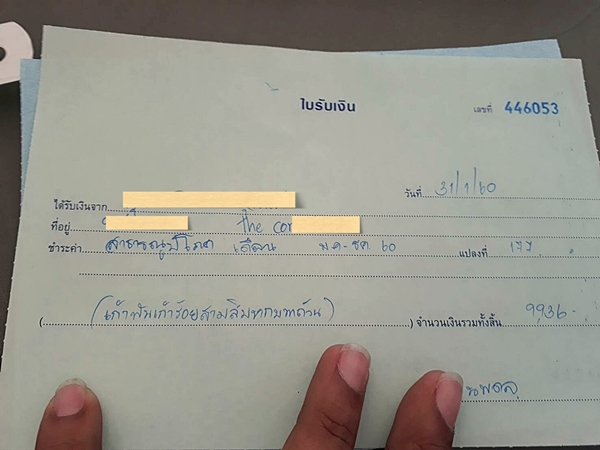 ใบรับเงิน เลขที่ 446053
วันที่ 31/1/60
ได้รับเงินจาก
ที่อยู่ the cor
ชำระค่า สาธารณูปโภค เดือน ม.ค-ธ.ค 60 แปลงที่ 177
(เก้าพันเก้าร้อยสามสิบหกบาทถ้วน) จำนวนเงินรวมทั้งสิ้น 9936